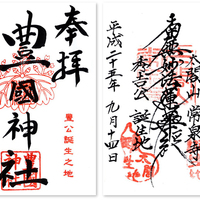 奉拝
豊公誕生之地
豊國神社
太閤山常泉寺
南無妙法蓮華経
秀吉公誕生地
平成二十五年九月十四日